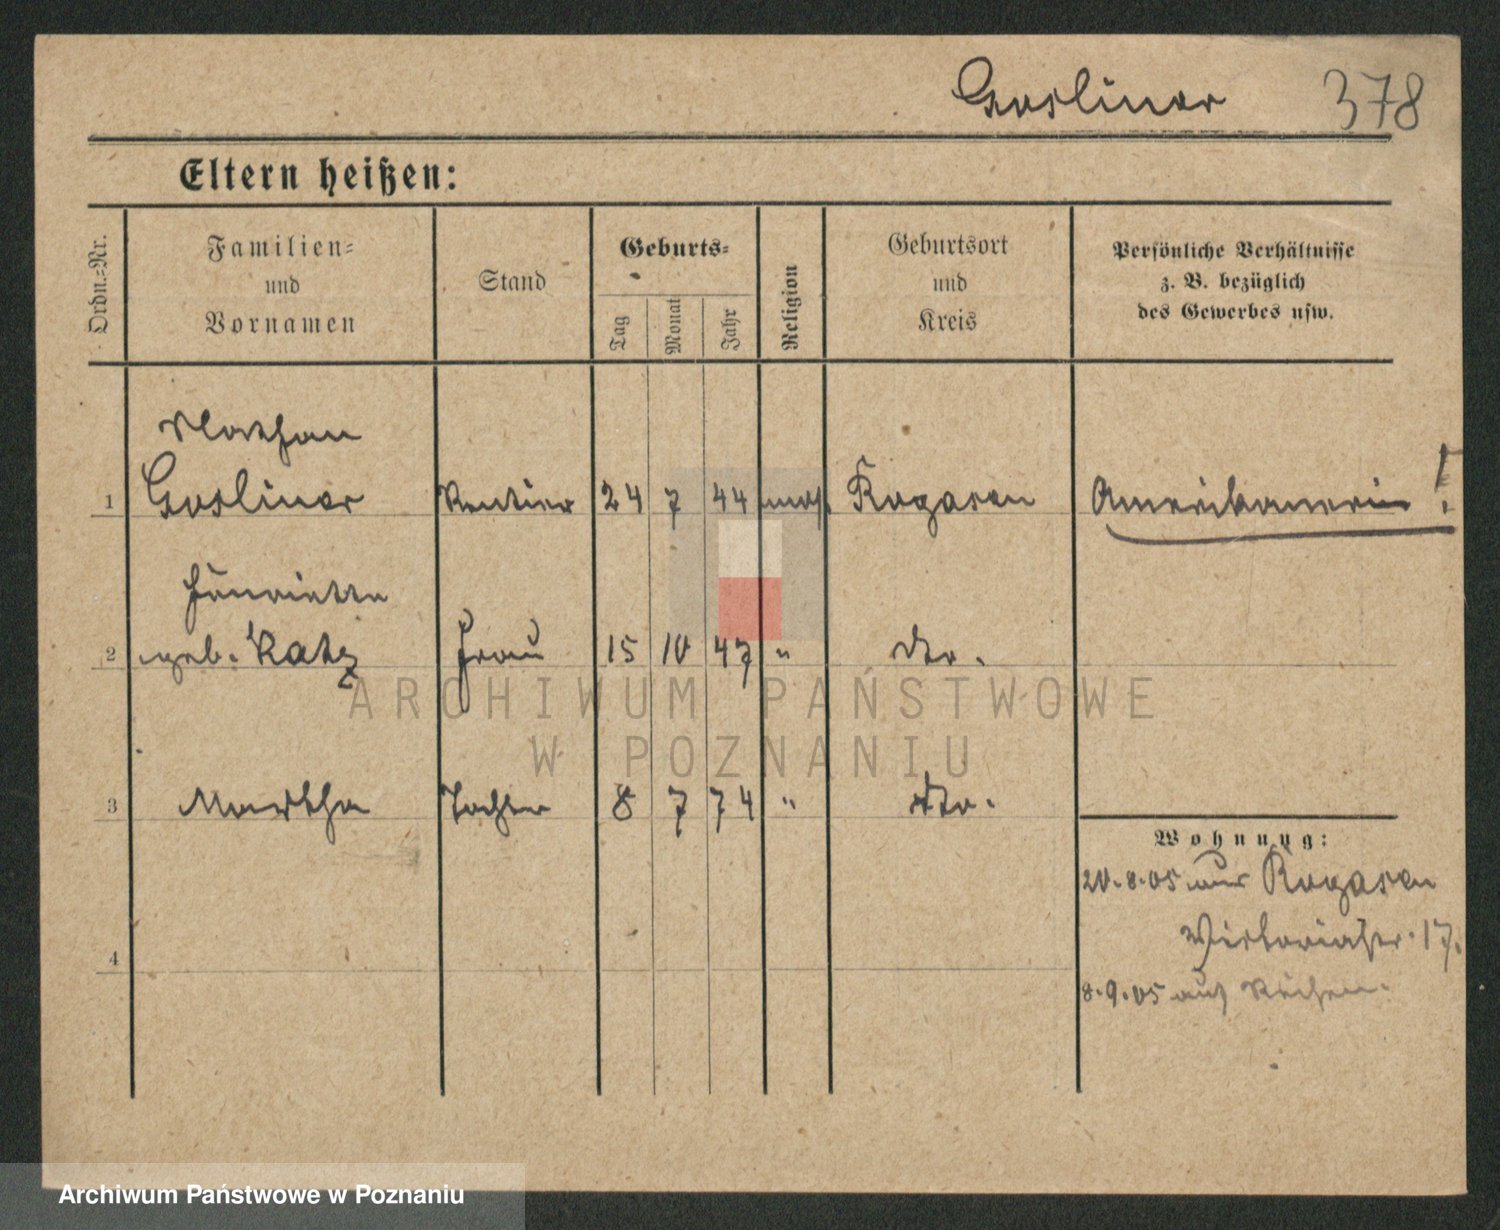 Gosliner 378
Eltern heißen:
Ordn.-Nr.
Familien-
und
Vornamen
Stand
Geburts-
Tag
Monat
Jahr
Religion
Geburtsort
und
Kreis
Persönliche Verhältnisse
z. B. bezüglich
des Gewerbes usw.
Nathan
1 Gosliner Rentier 24 7 44 mos. Rogasen Amerikanerin !
Henriette
2 geb. Katz Frau 15 10 47 " dto.
3 Martha Tochter 8 7 74 " dto.
Wohnung:
20.8.05 aus Rogasen
Wiktoriastr. 17.
4
8.9.05 auf Reisen.
ARCHIWUM PAŃSTWOWE
W POZNANIU
Archiwum Państwowe w Poznaniu